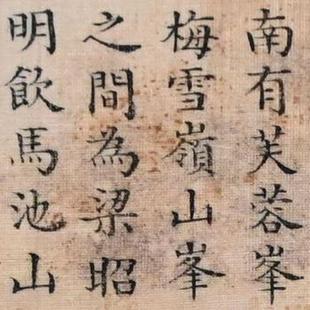 南有芙蓉峯
梅雪嶺山峯
之間為梁昭
明飲馬池山